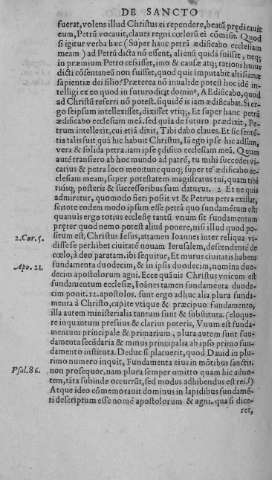 DE SANCTO
fuerat, volens illud Christus ei rependere, beatū prędicauit
eum, Petrū vocauit, claues regni cœlorū ei cōmisit. Quod
si igitur verba hæc (Super hanc petrā ædificabo ecclesiam
meam) ad Petrū dicta nō essent, alienū quidā fuisset,
in præmium Petro cessisset, imo & causæ atq; rationi huius
dicti cōsentaneū non fuisset, quod quis imputabit altissimæ
sapientiæ dei filio? Præterea nō inualide potest hoc idē in-
telligi ex eo quod in futuro dicit domin⁹, Ædificabo, quod
ad Christū referri nō potest. siquidē is iam ædificabat. Si er-
go seipsum intellexisset, dixisset vtiq; Et super hanc petrā
ædificabo ecclesiam meā. sed quia de futuro prædixit, Pe-
trum intellexit, cui etiā dixit, Tibi dabo claues. Et sic sentē-
tia talis fuit quā hic habuit Christus, Ego ipse hic ad sum,
vera & solida petra. iam ipse ędifico ecclesiam meā. Quum
aute transiero ab hoc mundo ad patrē, tu mihi succedes vi-
carius & petra loco meo: tunc quoq; super te ædificabo ec-
clesiam meam, super potestatem magistratus tui, quam tibi
tuisq; posteris & successoribus sum daturus. 2. Et ne quis
admiretur, quomodo fieri possit vt & Petrus petra existat,
scito eodem modo ipsum esse petrā quo fundamētum est
quamuis ergo totius ecclesię tantū vnum sit fundamentum
præter quod nemo potest aliud ponere, nisi illud quod po-
situm est, Christus Iesus, attamen Ioannes inter reliqua vi-
2.Cor.5.
disse se perhibet ciuitatē nouam Ierusalem, descendentē de
cœlo, à deo paratam. ibi sequitur, Et murus ciuitatis habens
Apo. 21.
fundamenta duodecim, & in ipsis duodecim, nomina duo-
decim apostolorum agni. Ecce quāuis Christus vnicum est
fundamentum ecclesiæ, Ioannes tamen fundamenta duode-
cim ponit. 12. apostolos. sunt ergo adhuc alia plura funda-
menta à Christo, capite vtique & præcipuo fundamento,
illa autem ministerialia tantum sunt & substituta. (eloque-
re in quantum presius & clarius poteris, Vnum est funda-
mentum principale & primarium, plura autem sunt funda-
menta secūdaria & minus principalia ab ipso primo fun-
damento instituta. Deduc si placuerit, quod Dauid in plu-
rimo numero inquit, Fundamenta eius in mōtibus sanctis.
Psal.86.
non prosequor, nam plura semper omitto quam hic adnu-
tem, ita subinde occurrūt, sed modus adhibendus est rei.)
Atque ideo cōmemorauit dominus in lapidibus fundamē-
ti descriptum esse nomē apostolorum & agni. quasi dice-
ret,